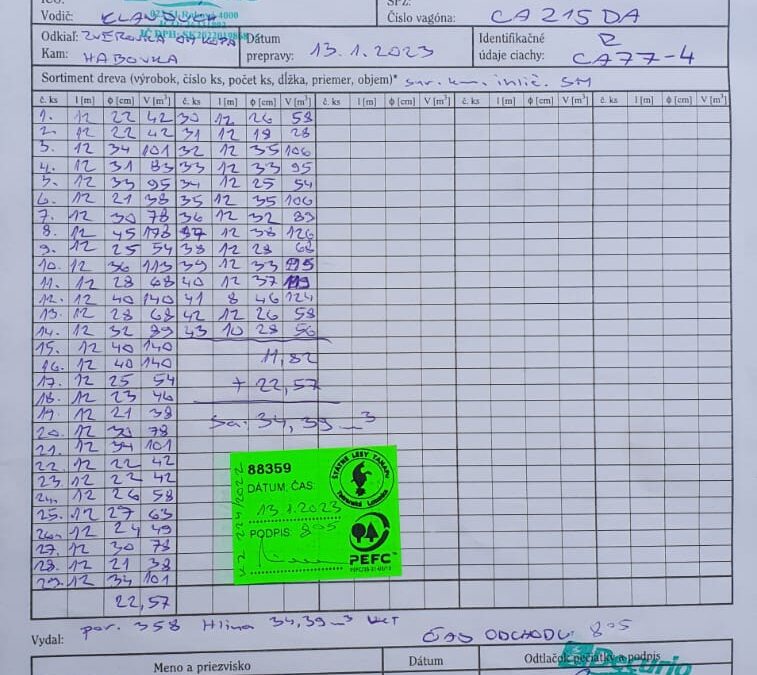 IČO:
ŠPZ:
Vodič: KLAUDUŠA
02951 Rakova 4000
IČ DPH: SK2022019868
Číslo vagóna: CA 215 DA
Odkiaľ: ZVEROVKA OM KOPA
Kam: HABOVKA
Dátum prepravy: 13.1.2023
Identifikačné údaje ciachy: R CA77-4
Sortiment dreva (výrobok, číslo ks, počet ks, dĺžka, priemer, objem)* sur. km. ihlič. SM
č. ks l [m] ϕ [cm] V [m³] č. ks l [m] ϕ [cm] V [m³] č. ks l [m] ϕ [cm] V [m³] č. ks l [m] ϕ [cm] V [m³] č. ks l [m] ϕ [cm] V [m³]
1. 12 22 42 30 12 26 58
2. 12 22 42 31 12 18 28
3. 12 34 101 32 12 35 106
4. 12 31 83 33 12 33 95
5. 12 33 95 34 12 25 54
6. 12 21 38 35 12 35 106
7. 12 30 78 36 12 32 89
8. 12 45 178 37 12 38 126
9. 12 25 54 38 12 28 68
10. 12 36 113 39 12 33 95
11. 12 28 68 40 12 37 119
12. 12 40 140 41 8 46 124
13. 12 28 68 42 12 26 58
14. 12 32 89 43 10 28 56
15. 12 40 140
11,82
16. 12 40 140
17. 12 25 54
+ 22,57
18. 12 23 46
19. 12 21 38
Sa: 34,39 m3
20. 12 30 78
21. 12 34 101
22. 12 22 42
23. 12 22 42
24. 12 26 58
25. 12 27 63
26. 12 24 49
27. 12 30 78
28. 12 21 38
29. 12 34 101
22,57
88359
DÁTUM, ČAS:
13.1.2023
805
PODPIS:
ŠTÁTNE LESY TANAPU
Tatranská Lomnica
PEFC™
Vydal: por. 358 Hlina 34,39 m3
ČAS ODCHODU: 805
Meno a priezvisko
Dátum
Odtlačok pečiatky a podpis
Decurio